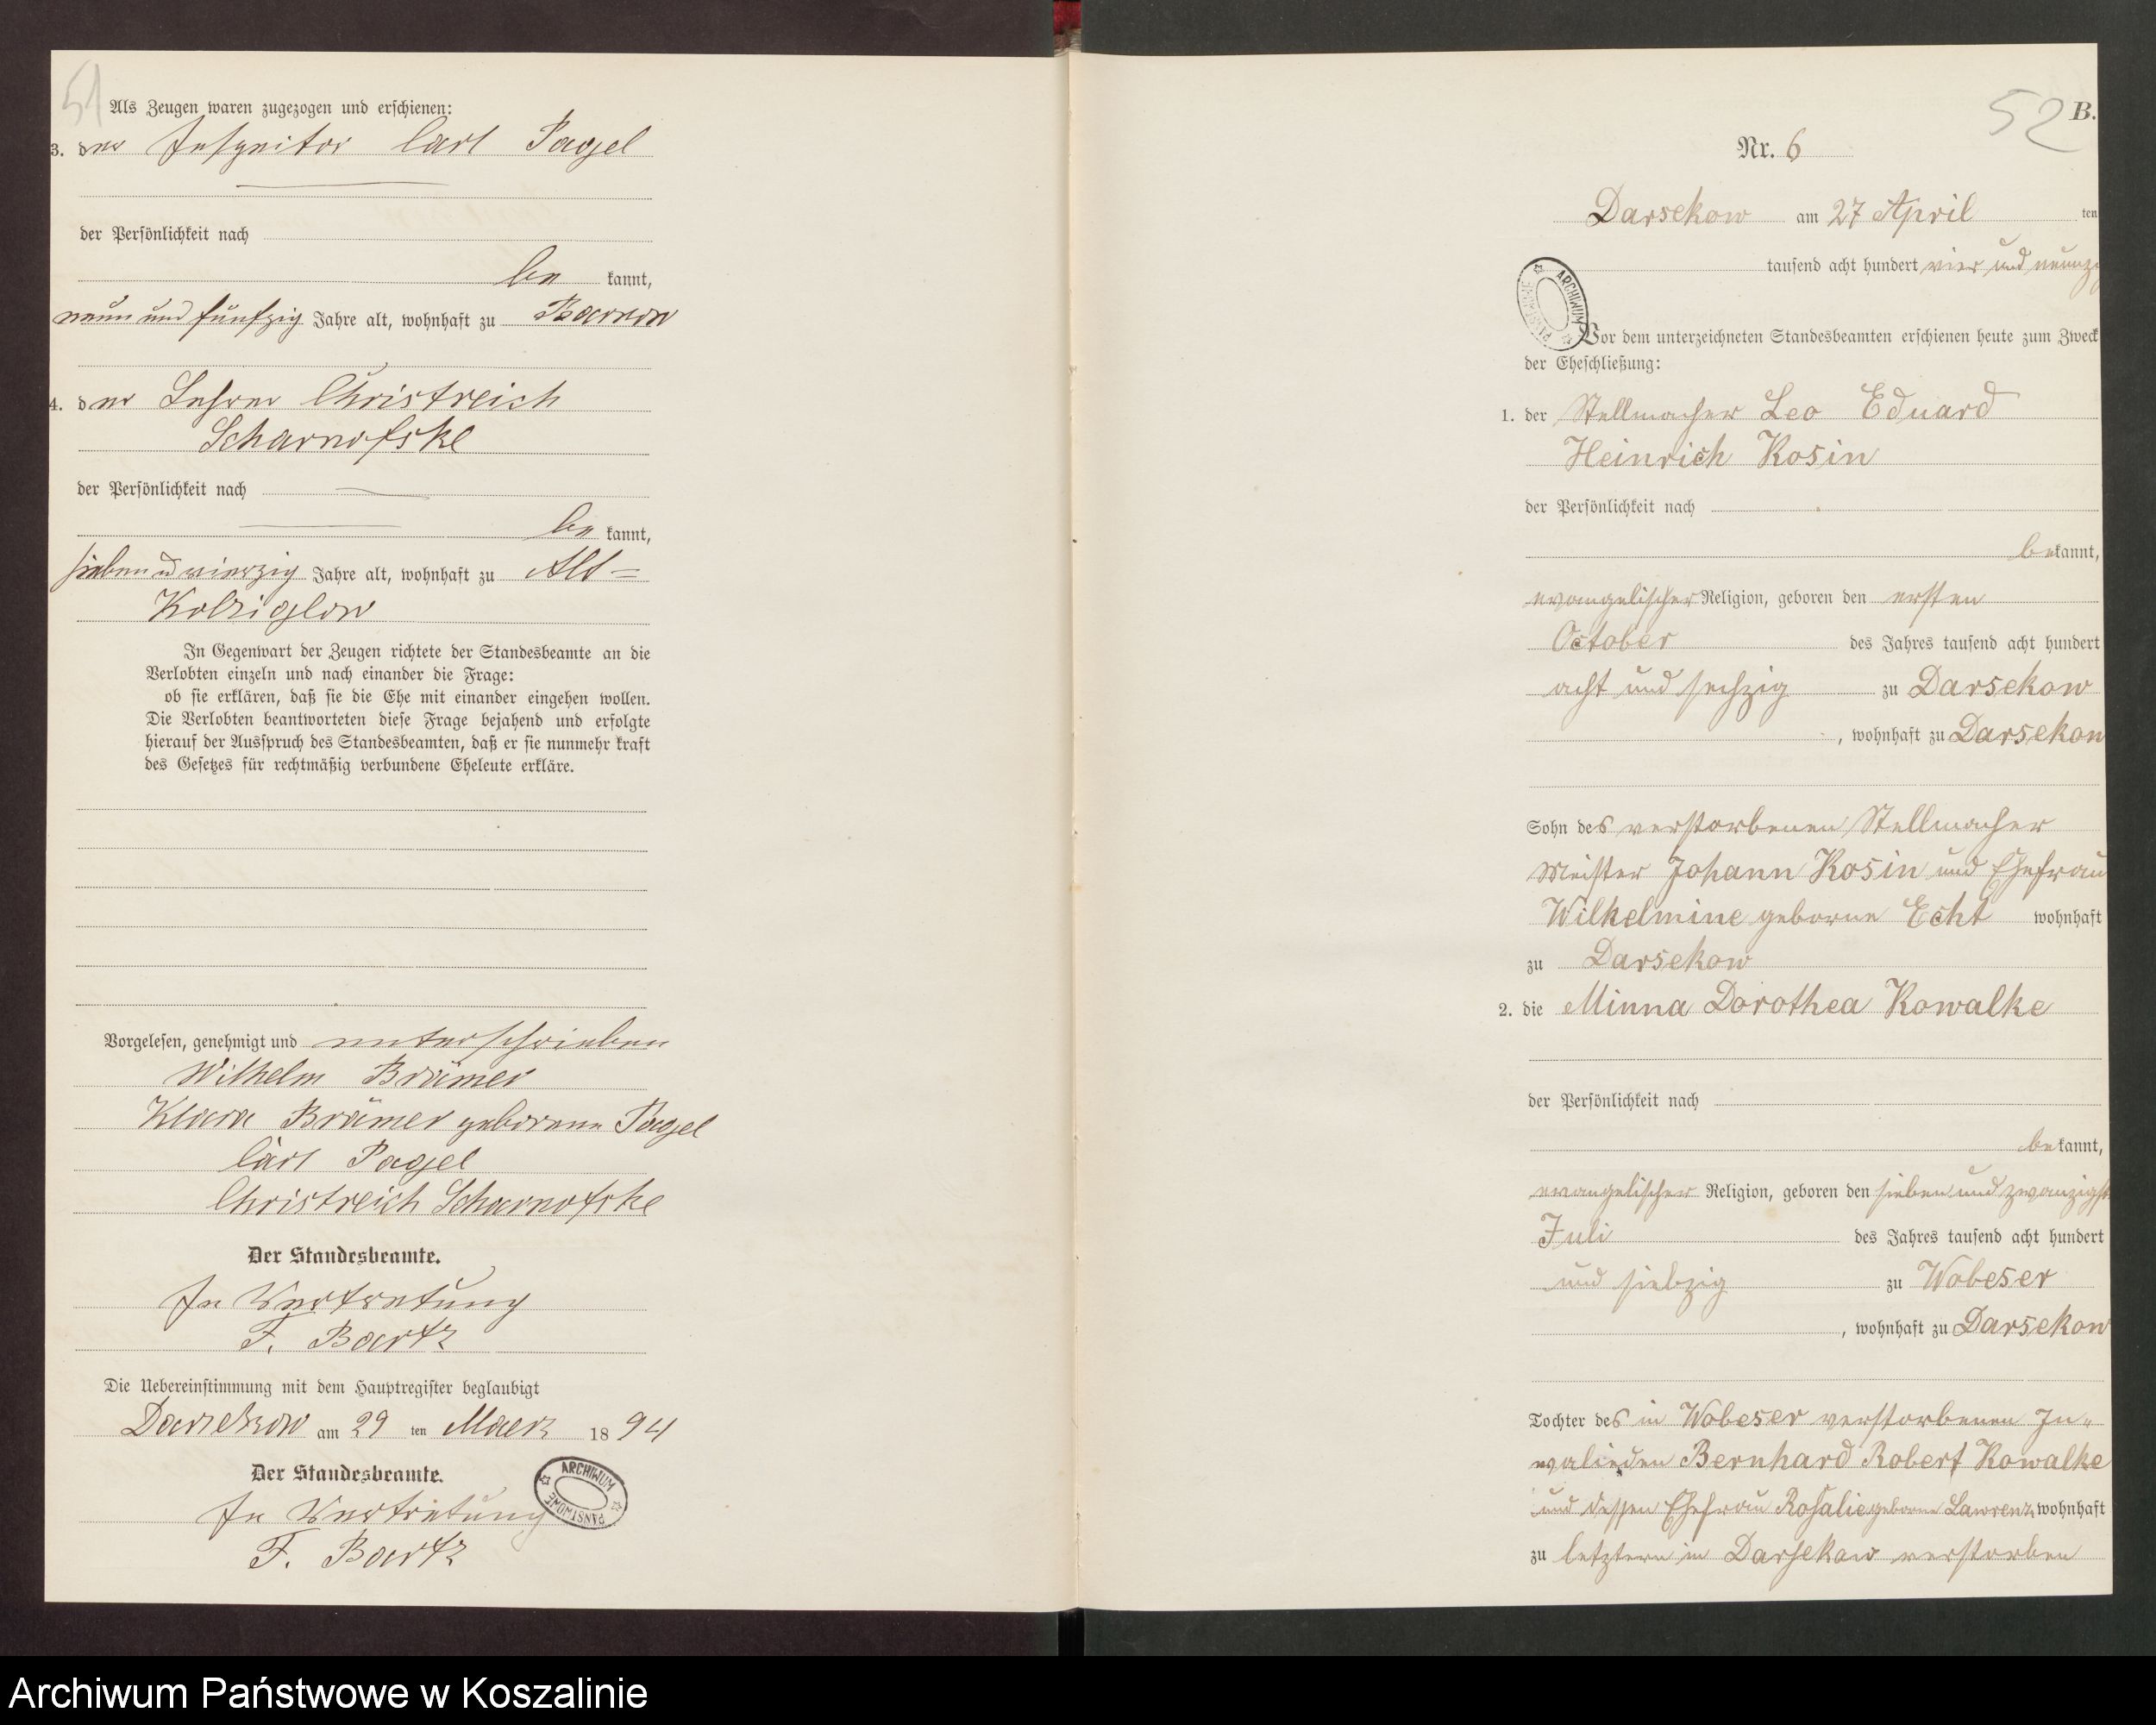 51
Als Zeugen waren zugezogen und erschienen:
3. der Inspector Carl Pagel
der Persönlichkeit nach
be kannt,
neun und fünfzig Jahre alt, wohnhaft zu Barnow
4. der Lehrer Christreich
Scharnofske
der Persönlichkeit nach
be kannt,
sieben u vierzig Jahre alt, wohnhaft zu Alt=
Kolziglow
In Gegenwart der Zeugen richtete der Standesbeamte an die
Verlobten einzeln und nach einander die Frage:
ob sie erklären, daß sie die Ehe mit einander eingehen wollen.
Die Verlobten beantworteten diese Frage bejahend und erfolgte
hierauf der Ausspruch des Standesbeamten, daß er sie nunmehr kraft
des Gesetzes für rechtmäßig verbundene Eheleute erkläre.
Vorgelesen, genehmigt und unterschrieben
Wilhelm Brämer
Klara Brämer geborene Pagel
Carl Pagel
Christreich Scharnofske
Der Standesbeamte.
In Vertretung
F. Bartz
Die Uebereinstimmung mit dem Hauptregister beglaubigt
Darsekow am 29 ten Maerz 18 94
Der Standesbeamte.
In Vertretung
F. Bartz
ARCHIWUM PAŃSTWOWE
52 B.
Nr. 6
Darsekow am 27 April ten
tausend acht hundert vier und neunzig
ARCHIWUM PAŃSTWOWE
Vor dem unterzeichneten Standesbeamten erschienen heute zum Zweck
der Eheschließung:
1. der Stellmacher Leo Eduard
Heinrich Kosin
der Persönlichkeit nach
bekannt,
evangelischer Religion, geboren den ersten
October des Jahres tausend acht hundert
acht und sechzig zu Darsekow
, wohnhaft zu Darsekow
Sohn des verstorbenen Stellmacher
Meister Johann Kosin und Ehefrau
Wilhelmine geborne Echt wohnhaft
zu Darsekow
2. die Minna Dorothea Kowalke
der Persönlichkeit nach
bekannt,
evangelischer Religion, geboren den sieben und zwanzigst
Juli des Jahres tausend acht hundert
und siebzig zu Wobeser
, wohnhaft zu Darsekow
Tochter des in Wobeser verstorbenen In-
valieden Bernhard Robert Kowalke
und dessen Ehefrau Rosalie geborne Lawrenz wohnhaft
zu letztern in Darsekow verstorben
Archiwum Państwowe w Koszalinie